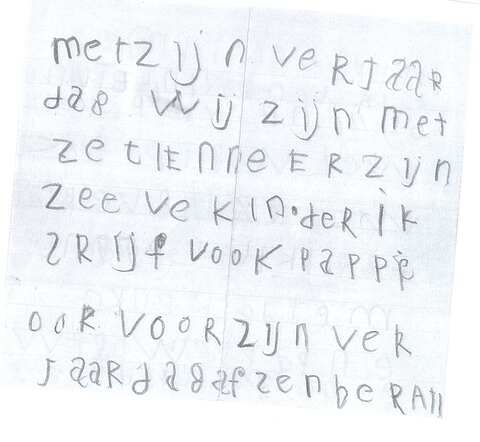 met zijn verjaar
dag wij zijn met
zetienneer zijn
zee vekinder ik
srijf vook pappe
ook voor zijn vek
jaar dag af zenberan